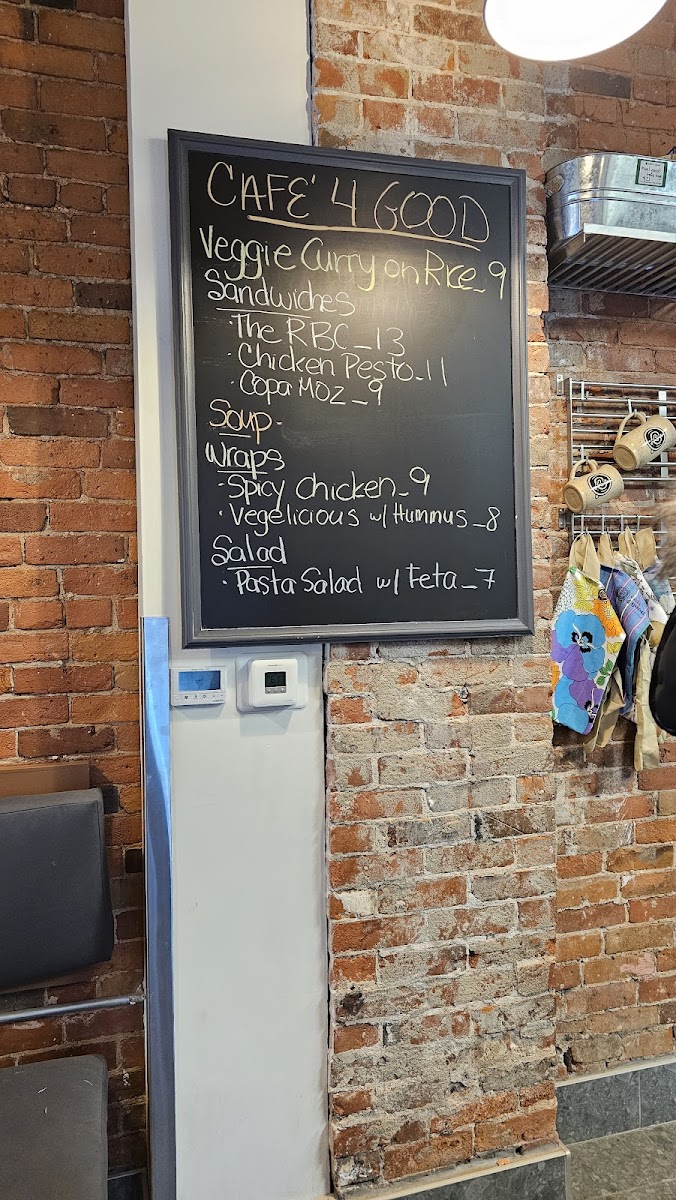 CAFÉ 4 GOOD
Veggie Curry on Rice_9
Sandwiches
·The RBC_13
·Chicken Pesto_11
·Copa MOZ_9
Soup-
Wraps
-Spicy Chicken_9
·Vegelicious w/ Hummus_8
Salad
·Pasta Salad w/ Feta_7